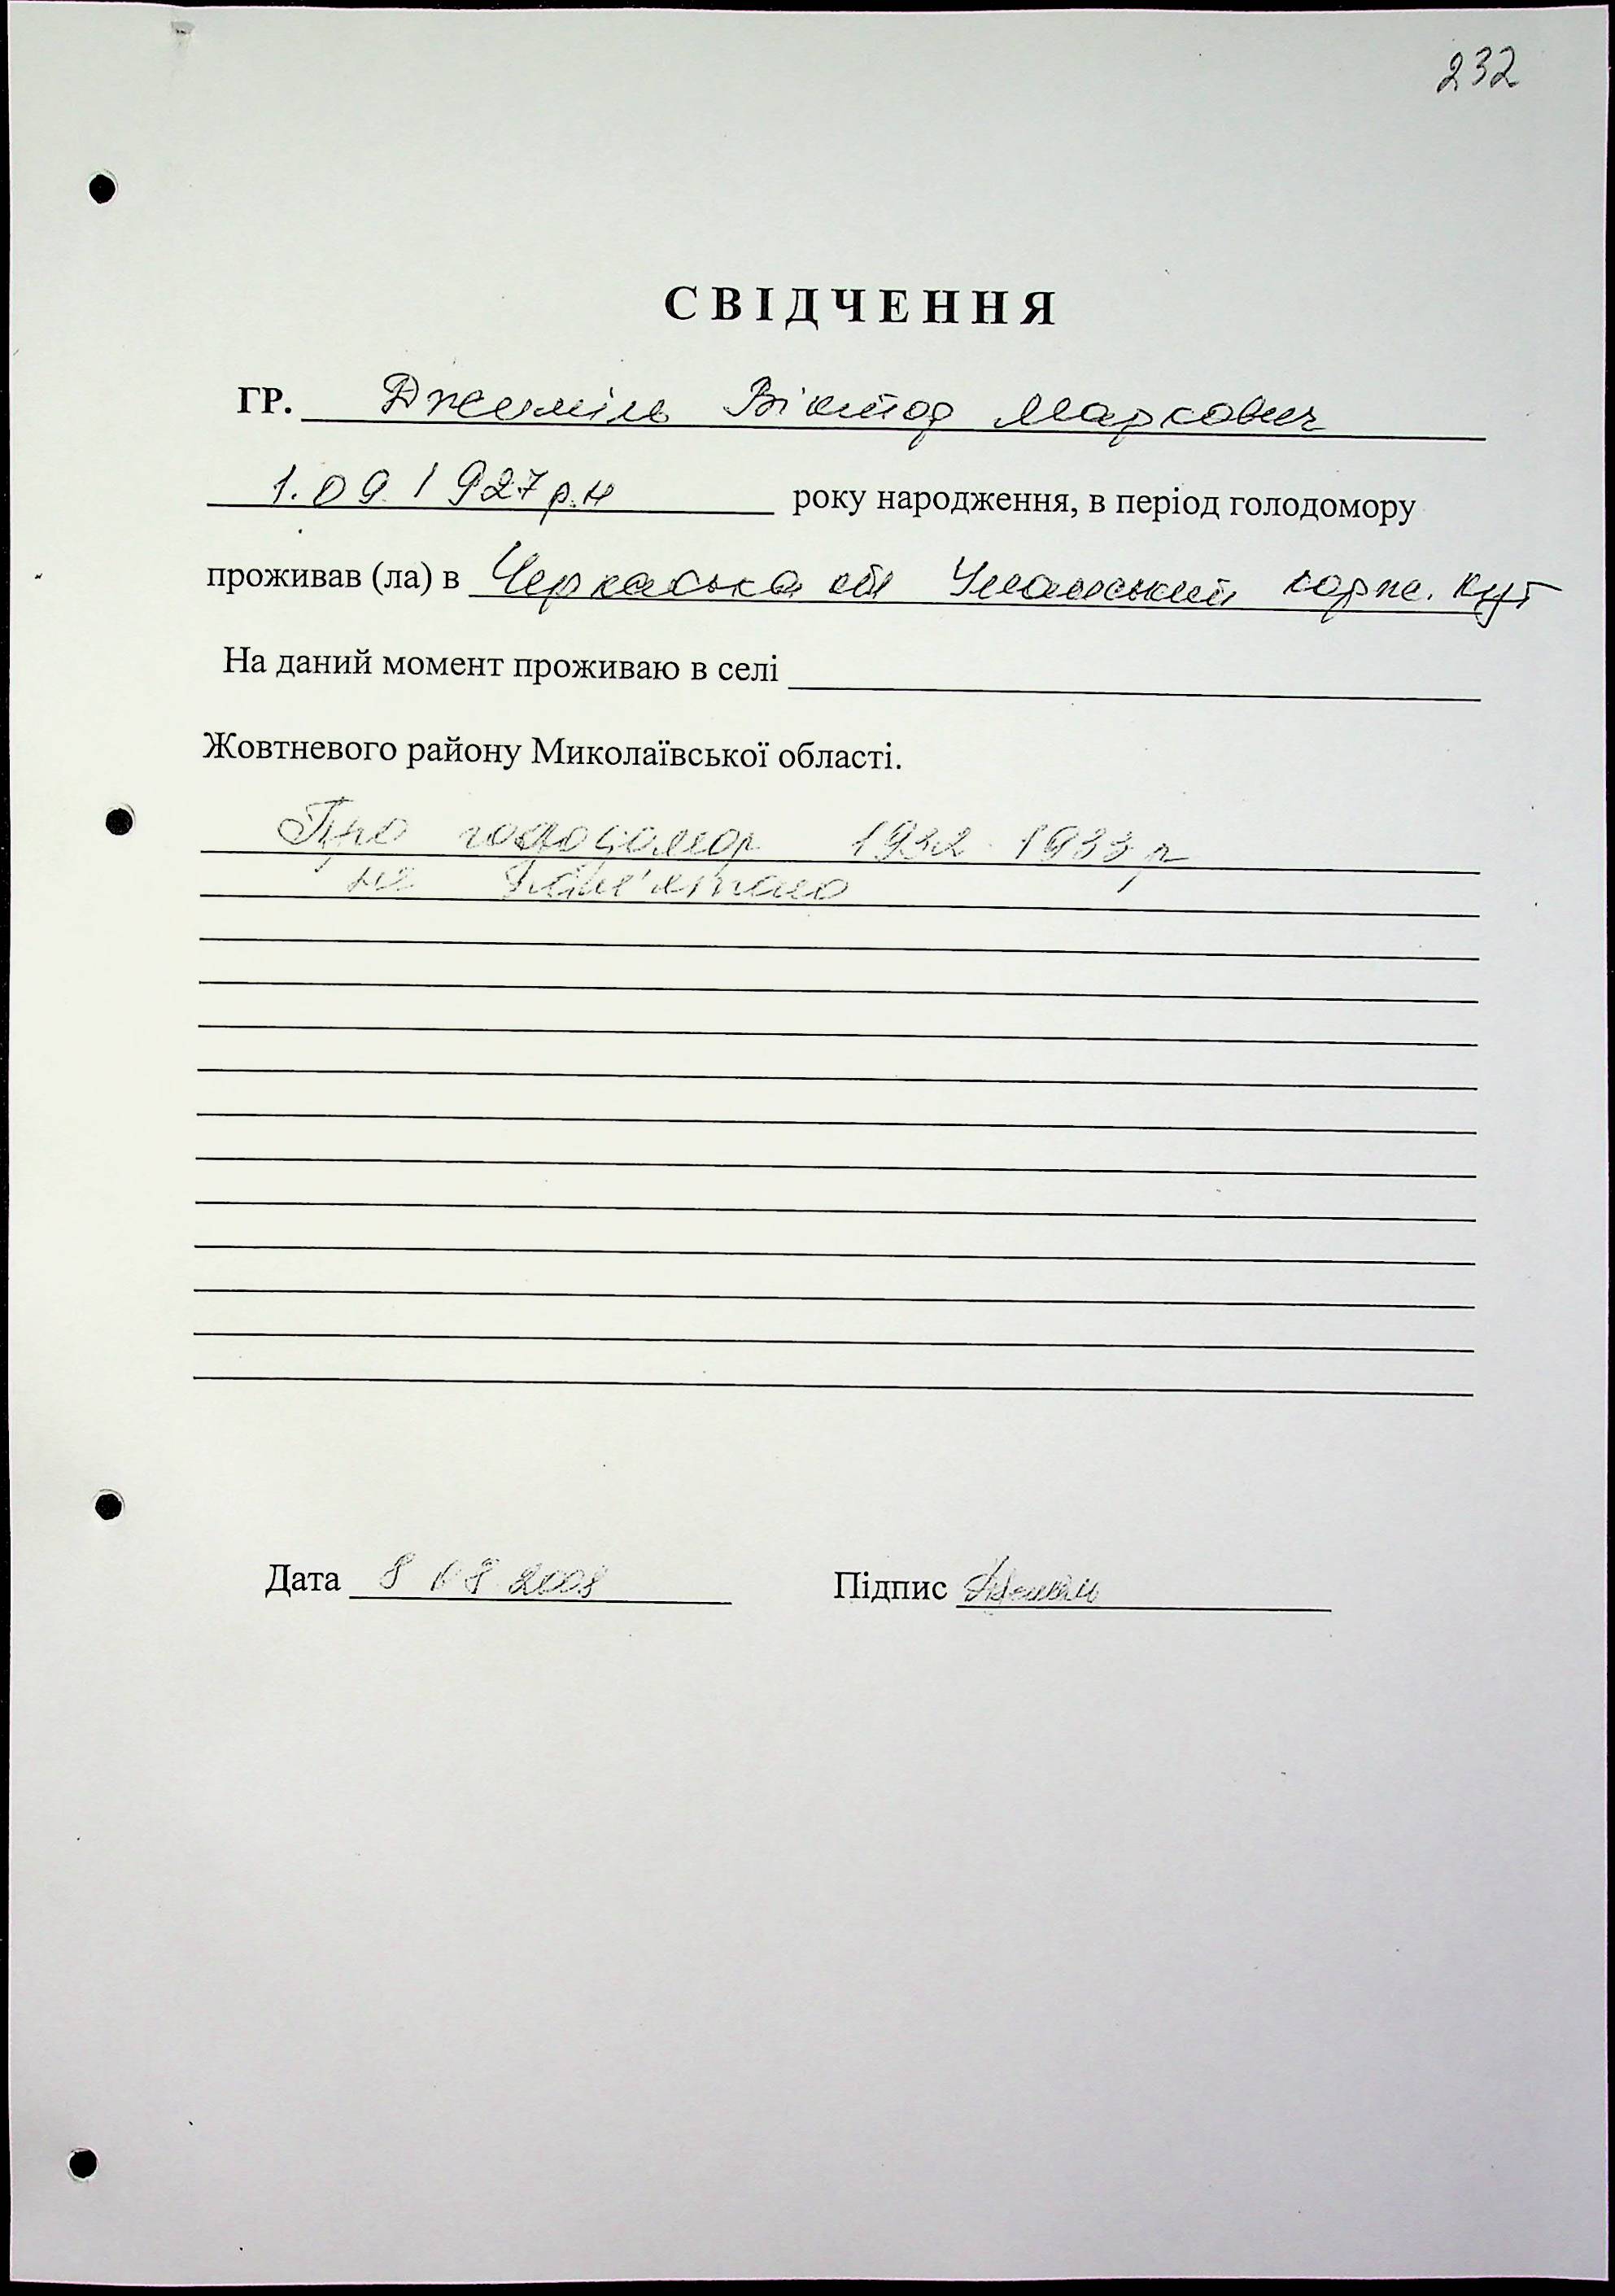 232
СВІДЧЕННЯ
ГР. Джеміль Віктор Маркович
1.09.1927 р.н року народження, в період голодомору
проживав (ла) в Черкаська обл Уманський Корж. Кут
На даний момент проживаю в селі
Жовтневого району Миколаївської області.
Про голодомор 1932-1933 р
не пам'ятаю
Дата 8 08 2008 Підпис